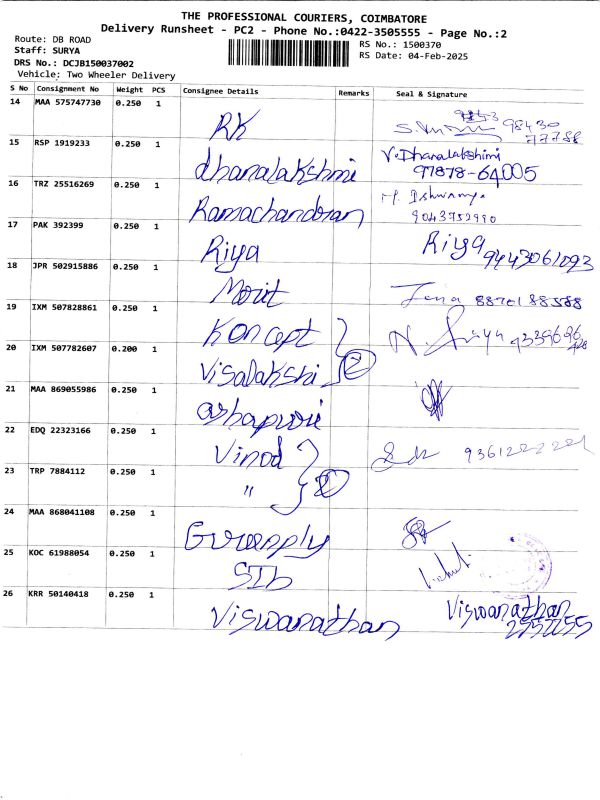 THE PROFESSIONAL COURIERS, COIMBATORE
Delivery Runsheet - PC2 - Phone No.:0422-3505555 - Page No.:2
Route: DB ROAD
RS No.: 1500370
Staff: SURYA
RS Date: 04-Feb-2025
DRS No.: DCJB150037002
Vehicle: Two Wheeler Delivery
S No Consignment No Weight PCS Consignee Details Remarks Seal & Signature
14 MAA 575747730 0.250 1 RK 98430
77788
15 RSP 1919233 0.250 1 dhanalakshmi V. Dhanalakshimi
97878-64005
16 TRZ 25516269 0.250 1 Ramachandran
9043752990
17 PAK 392399 0.250 1 Riya Riya 9443061093
18 JPR 502915886 0.250 1 Morit Jena 8870188588
19 IXM 507828861 0.250 1 Koncept
20 IXM 507782607 0.200 1 Visalakshi 2
21 MAA 869055986 0.250 1
22 EDQ 22323166 0.250 1 Vinod
23 TRP 7884112 0.250 1 "
24 MAA 868041108 0.250 1
25 KOC 61988054 0.250 1 SIb
26 KRR 50140418 0.250 1 Viswanathan Viswanathan